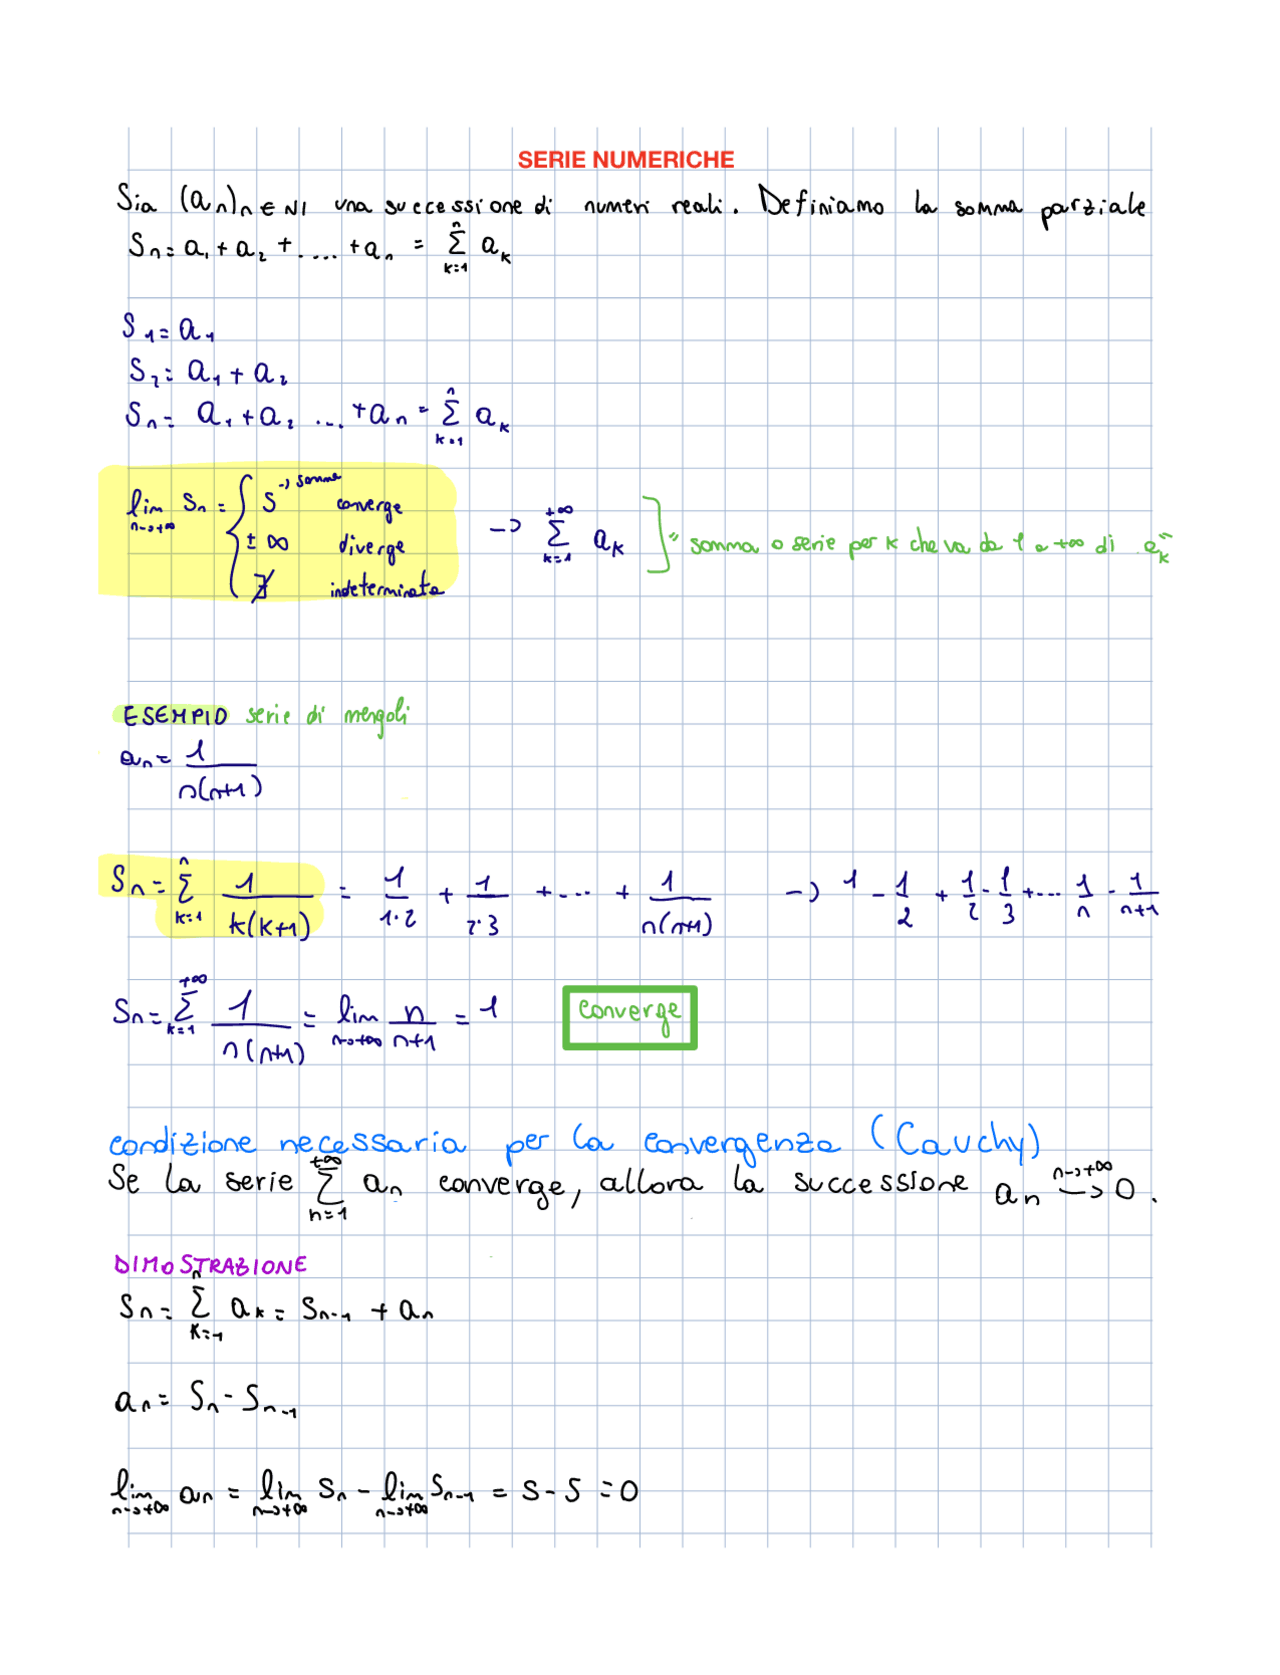 SERIE NUMERICHE
Sia (aₙ)ₙ∈ℕ una successione di numeri reali. Definiamo la somma parziale
Sₙ = a₁ + a₂ + .... + aₙ = Σₖ₌₁ⁿ aₖ
S₁ = a₁
S₂ = a₁ + a₂
Sₙ = a₁ + a₂ .... + aₙ = Σₖ₌₁ⁿ aₖ
lim n→+∞ Sₙ = { S → somma converge
± ∞ diverge
∄ indeterminata
→ Σₖ₌₁^+∞ aₖ ] "somma o serie per k che va da 1 a +∞ di aₖ"
ESEMPIO serie di mengoli
aₙ = 1/n(n+1)
Sₙ = Σₖ₌₁ⁿ 1/k(k+1) = 1/1·2 + 1/2·3 + .... + 1/n(n+1) → 1 - 1/2 + 1/2 - 1/3 + .... 1/n - 1/n+1
Sₙ = Σₖ₌₁^+∞ 1/n(n+1) = lim n→+∞ n/n+1 = 1 converge
condizione necessaria per la convergenza (Cauchy)
Se la serie Σₙ₌₁^+∞ aₙ converge, allora la successione aₙ → 0 (n→+∞).
DIMOSTRAZIONE
Sₙ = Σₖ₌₁ⁿ aₖ = Sₙ₋₁ + aₙ
aₙ = Sₙ - Sₙ₋₁
lim n→+∞ aₙ = lim n→+∞ Sₙ - lim n→+∞ Sₙ₋₁ = S - S = 0